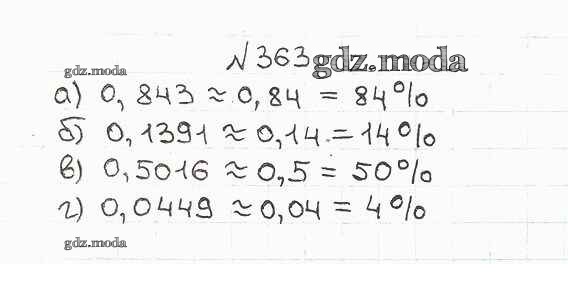 №363 gdz.moda
gdz.moda
а) 0,843 ≈ 0,84 = 84%
б) 0,1391 ≈ 0,14 = 14%
в) 0,5016 ≈ 0,5 = 50%
г) 0,0449 ≈ 0,04 = 4%
gdz.moda